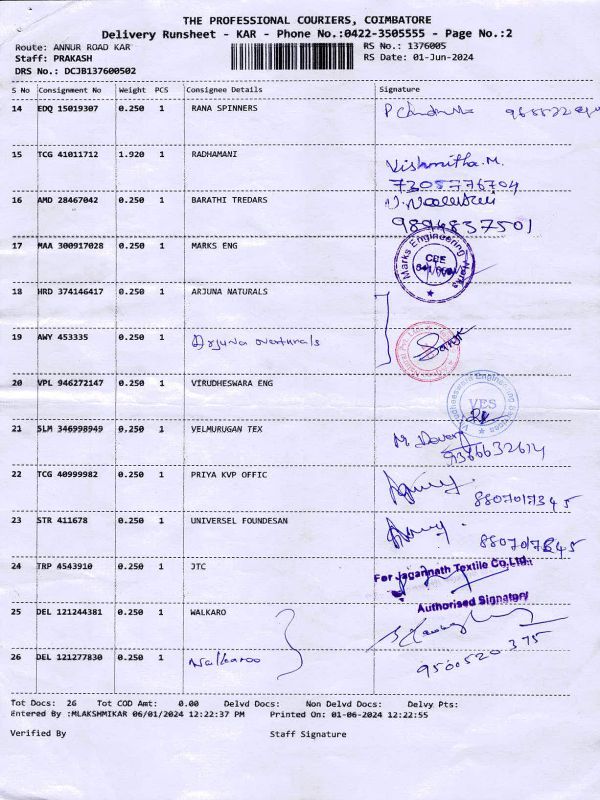 THE PROFESSIONAL COURIERS, COIMBATORE
Delivery Runsheet - KAR - Phone No.:0422-3505555 - Page No.:2
Route: ANNUR ROAD KAR RS No.: 1376005
Staff: PRAKASH RS Date: 01-Jun-2024
DRS No.: DCJB137600502
S No Consignment No Weight PCS Consignee Details Signature
14 EDQ 15019307 0.250 1 RANA SPINNERS
15 TCG 41011712 1.920 1 RADHAMANI Vishmitha.M.
7305776704
16 AMD 28467042 0.250 1 BARATHI TREDARS
9894837501
17 MAA 300917028 0.250 1 MARKS ENG Marks Engineering Works CBE
18 HRD 374146417 0.250 1 ARJUNA NATURALS
19 AWY 453335 0.250 1 Arjuna
20 VPL 946272147 0.250 1 VIRUDHESWARA ENG VES
21 SLM 346998949 0.250 1 VELMURUGAN TEX
22 TCG 40999982 0.250 1 PRIYA KVP OFFIC
8807017345
23 STR 411678 0.250 1 UNIVERSEL FOUNDESAN
8807017345
24 TRP 4543910 0.250 1 JTC For Jagannath Textile Co.Ltd.
Authorised Signatory
25 DEL 121244381 0.250 1 WALKARO
26 DEL 121277830 0.250 1 Walkaroo 9500520375
Tot Docs: 26 Tot COD Amt: 0.00 Delvd Docs: Non Delvd Docs: Delvy Pts:
Entered By :MLAKSHMIKAR 06/01/2024 12:22:37 PM Printed On: 01-06-2024 12:22:55
Verified By Staff Signature